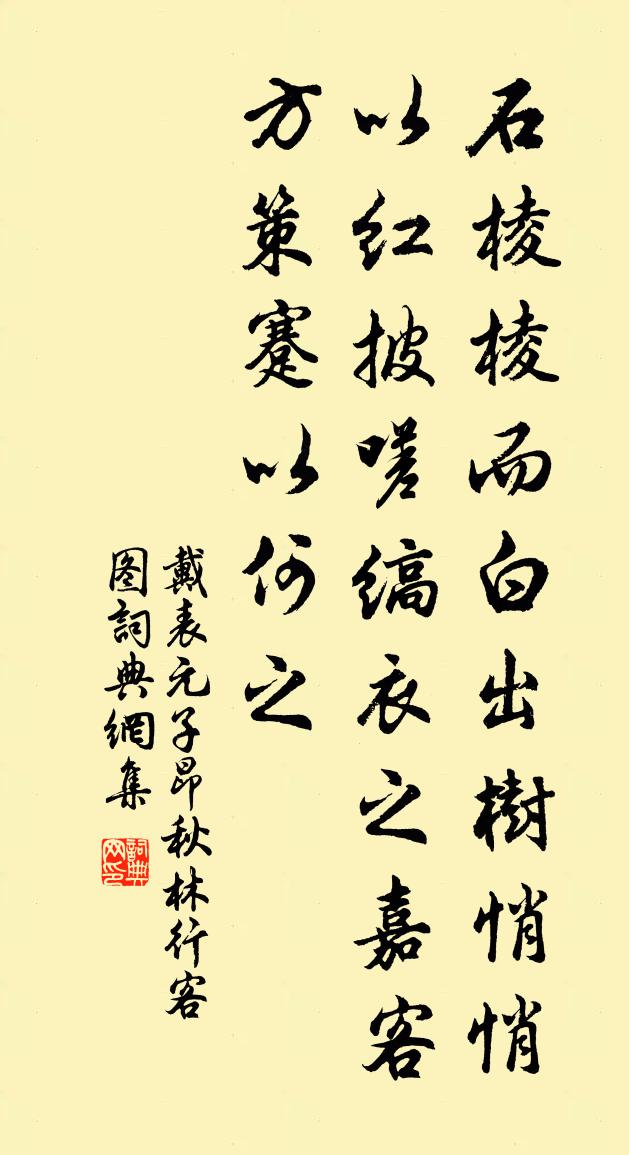 石棱棱而白出樹悄悄
以紅披嗟縞衣之嘉客
方策蹇以何之
戴表元子昂秋林行客
图詞典網集
詞典
网印